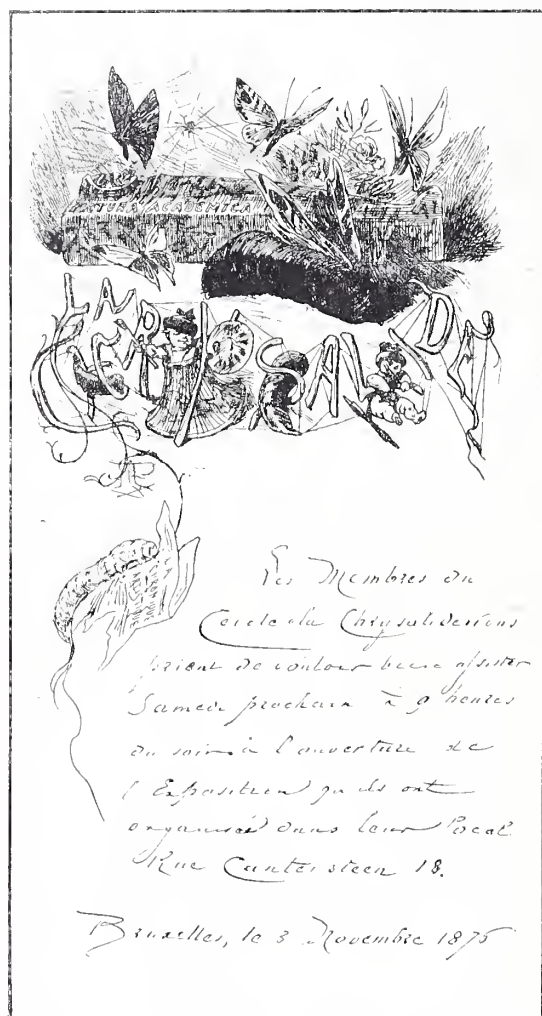 LA
CHRYSALIDE
Les Membres du
Cercle la Chrysalide vous
prient de vouloir bien assister
Samedi prochain à 9 heures
du soir à l'ouverture de
l'Exposition qu'ils ont
organisée dans leur local
Rue Cantersteen 18.
Bruxelles, le 3 Novembre 1875